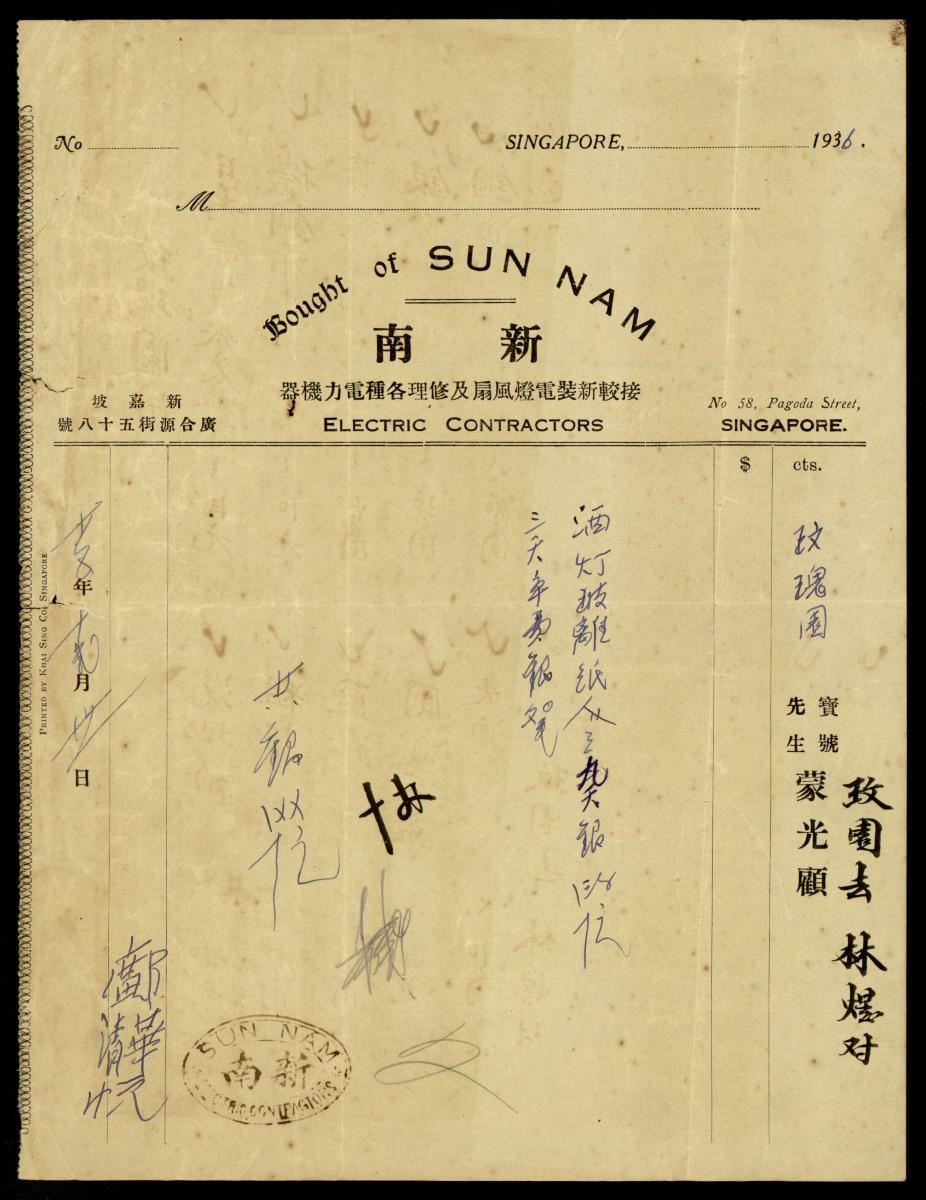 No
SINGAPORE, 1936.
M
Bought of SUN NAM
新南
接較新裝電燈風扇及修理各種電力機器
ELECTRIC CONTRACTORS
新嘉坡
廣合源街五十八號
No 58, Pagoda Street,
SINGAPORE.
$ cts.
玫瑰園
寶號
先生
蒙光顧
玫園去 林煜对
酒灯玻離纸
三天車費銀
共銀
年 月 廿 日
鄺清華
PRINTED BY KHAI SING CO. SINGAPORE
SUN NAM
新南
ELECTRIC CONTRACTORS